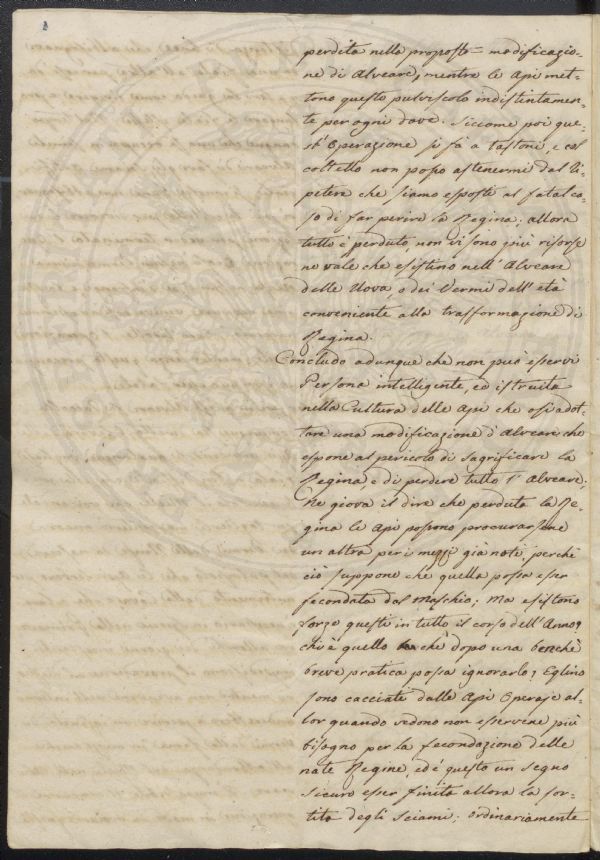 perdita nella proposta modificazio=
ne di Alveare, mentre le Api met=
tono questo pulviscolo indistintamen=
te per ogni dove. Siccome poi que=
st'Operazione si fà a tastoni, e col
coltello non posso astenermi dal ri=
petere che siamo esposti al fatal ca=
so di far perire la Regina; allora
tutto è perduto, non vi sono più risorse
ne vale che esistino nell'Alveare
delle Uova, o dei Vermi dell'età
conveniente alla trasformazione di
Regina.
Concludo adunque che non può esservi
Persona intelligente, ed istruita
nella Cultura delle Api che osi adot=
tare una modificazione d'Alveare che
espone al pericolo di sagrificare la
Regina e di perdere tutto l'Alveare;
Ne giova il dire che perduta la Re=
gina le Api possono procurarsene
un altra per i mezzi già noti, perchè
ciò suppone che quella possa esser
fecondata dal Maschio; Ma esistono
forze questi in tutto il corso dell'Anno?
chi è quello che dopo una benchè
breve pratica possa ignorarlo? Eglino
sono cacciati dalle Api Operaje al=
lor quando vedono non esservene più
bisogno per la fecondazione delle
nate Regine, ed è questo un segno
sicuro esser finita allora la sor=
tita degli Sciami; ordinariamente